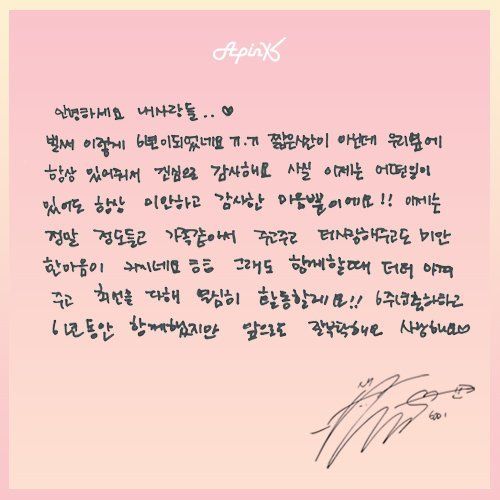 Apink6
안녕하세요 내사랑들..♥
벌써 이렇게 6년이되었네요 ㅠ.ㅠ 짧은시간이 아닌데 우리옆에
항상 있어줘서 진심으로 감사해요 사실 이제는 어떤일이
있어도 항상 미안하고 감사한 마음뿐이에요!! 이제는
정말 정도들고 가족같아서 주고주고 더사랑해주고도 미안
한마음이 커지네요 ㅎㅎ 그래도 함께할때 더더 아껴
주고 최선을 다해 열심히 활동할게요!! 6주년축하하고
6년동안 함께했지만 앞으로도 잘부탁해요 사랑해요♡